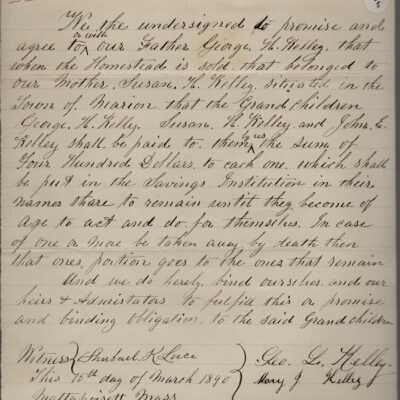 We the undersigned to promise and
agree to or with our Father George H. Kelley that
when the Homestead is sold that belonged to
our Mother Susan H. Kelley situated in the
Town of Marion that the Grand children
George. H. Kelly. Susan. H. Kelley and John. E.
Kelley shall be paid to them by us the Sum of
Four Hundred Dollars to each one which shall
be put in the Savings Institution in their
names there to remain until they become of
age to act and do for themselves. In case
of one or more be taken away by death then
that ones portion goes to the ones that remain
And we do hereby bind ourselves and our
heirs & Administators to fulfid this or promise
and binding obligation to the said Grand children
Witness Shubael K Luce
Geo. L. Kelley.
This 10th day of March 1890
Mary J Kelley
Mattapoisett Mass